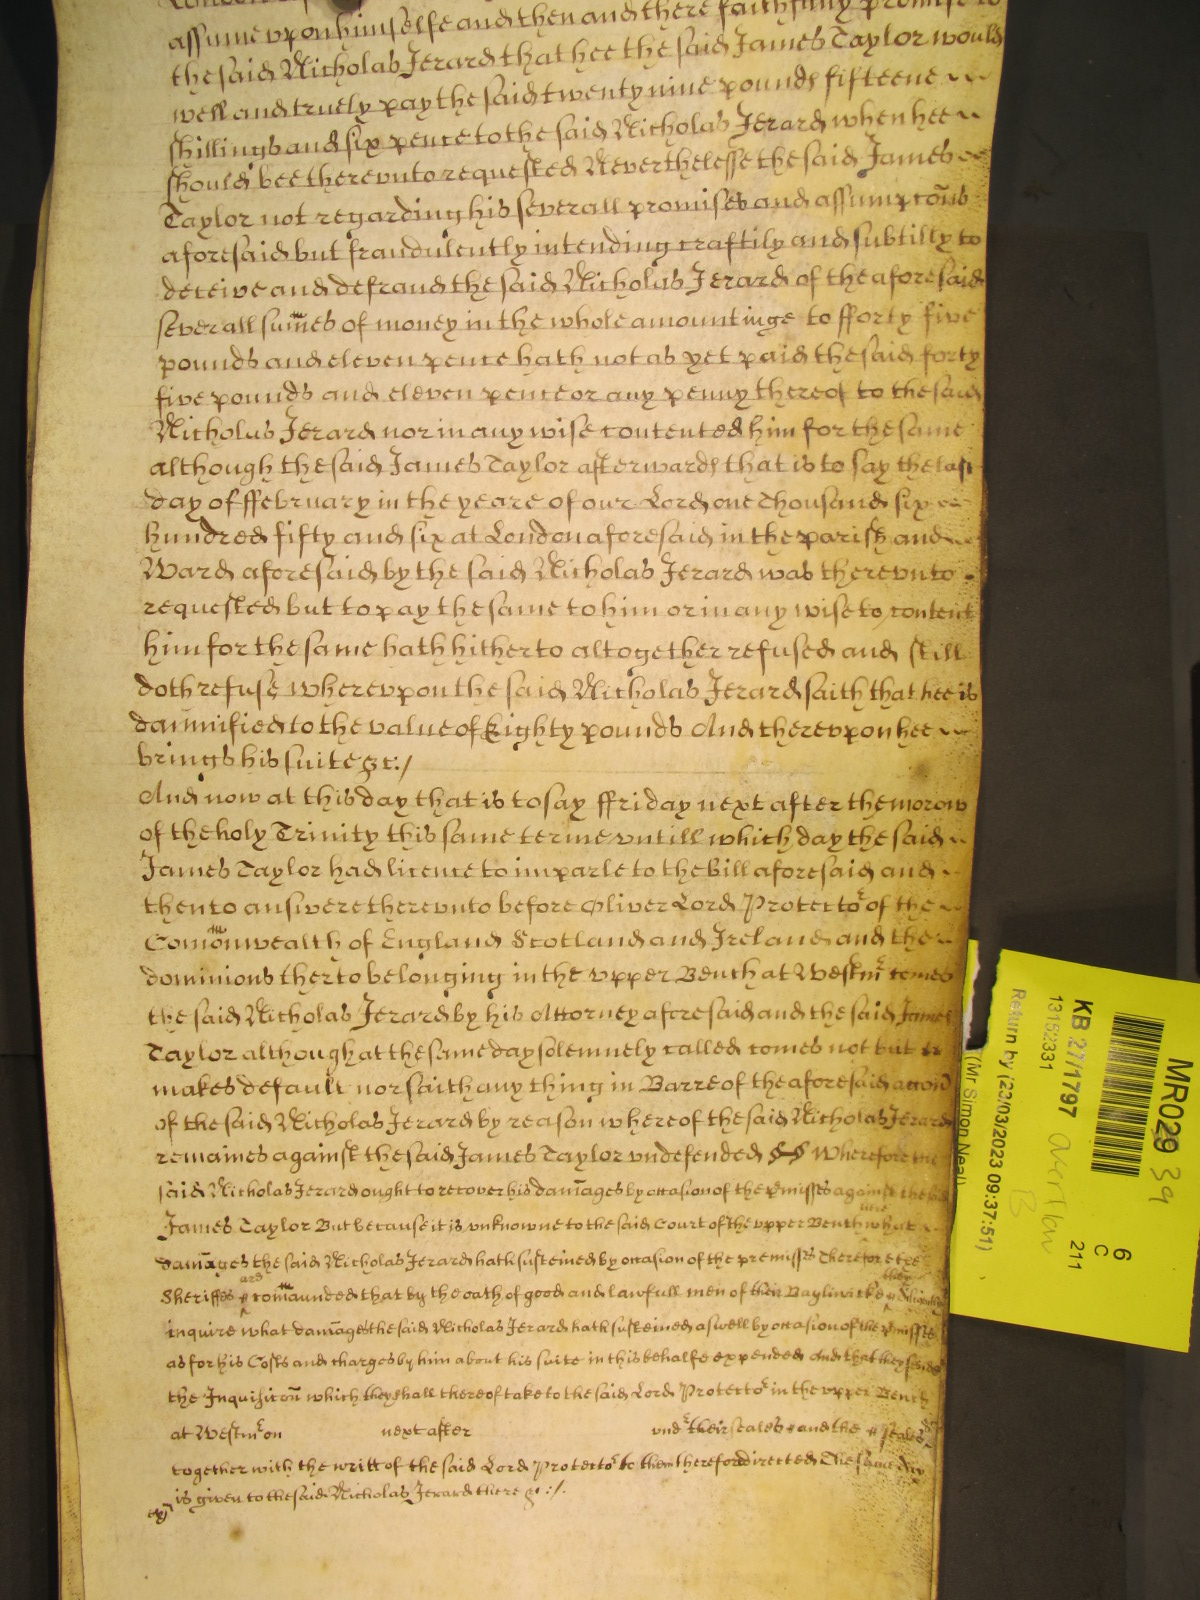 assume vpon himselfe and then and there faithfully promise to
the said Nicholas Jerard that hee the said James Taylor would
well and truely pay the said twenty nine pounds fifteene
shillings and six pence to the said Nicholas Jerard when hee
should bee therevnto requested Neverthelesse the said James
Taylor not regarding his severall promises and assumpcõns
aforesaid but fraudulently intending craftily and subtilly to
deceive and defraud the said Nicholas Jerard of the aforesaid
severall sum̃es of money in the whole amountinge to fforty five
pounds and eleven pence hath not as yet paid the said forty
five pounds and eleven pence or any penny thereof to the said
Nicholas Jerard nor in any wise contented him for the same
although the said James Taylor afterwards that is to say the last
day of ffebruary in the yeare of our Lord one Thousand six
hundred fifty and six at London aforesaid in the parish and
Ward aforesaid by the said Nicholas Jerard was therevnto
requested but to pay the same to him or in any wise to content
him for the same hath hitherto altogether refused and still
doth refuse wherevpon the said Nicholas Jerard saith that hee is
damnified to the value of Eighty pounds And therevpon hee
brings his suite &c:/
And now at this day that is to say ffriday next after the morow
of the holy Trinity this same terme vntill which day the said
James Taylor had licence to imparle to the bill aforesaid and
then to answere therevnto before Oliver Lord Protector of the
Com̃onwealth of England Scotland and Ireland and the
dominions therto belonging in the vpper Bench at Westmr comes
the said Nicholas Jerard by his Attorney aforesaid and the said James
Taylor although at the same day solemnely called comes not but
makes default nor saith any thing in Barre of the aforesaid accon̄
of the said Nicholas Jerard by reason whereof the said Nicholas Jerard
remaines against the said James Taylor vndefended Wherefore the
said Nicholas Jerard ought to recover his dam̃ages by occasion of the p̄misses against the said
James Taylor But because it is vnknowne to the said Court of the vpper Bench here what
dam̃ages the said Nicholas Jerard hath susteined by occasion of the premisses Therefore the
Sheriffes are com̃aunded that by the oath of good and lawfull men of their Bayliwicke they diligently
inquire what dam̃ages the said Nicholas Jerard hath susteined aswell by occasion of the p̄misses
as for his Costs and charges by him about his suite in this behalfe expended And that they send
the Inquisicõn which they shall thereof take to the said Lord Protector in the vpper Bench
at Westmr on next after vndr their seales and the seales of
together with the writt of the said Lord Protector to them therefore directed The same day
is given to the said Nicholas Jerard there &c:/.
MR029 39
KB 27/1797
13152331
Return by (22/03/2023 09:37:51)
(Mr Simon Neal)
6
C
211
B